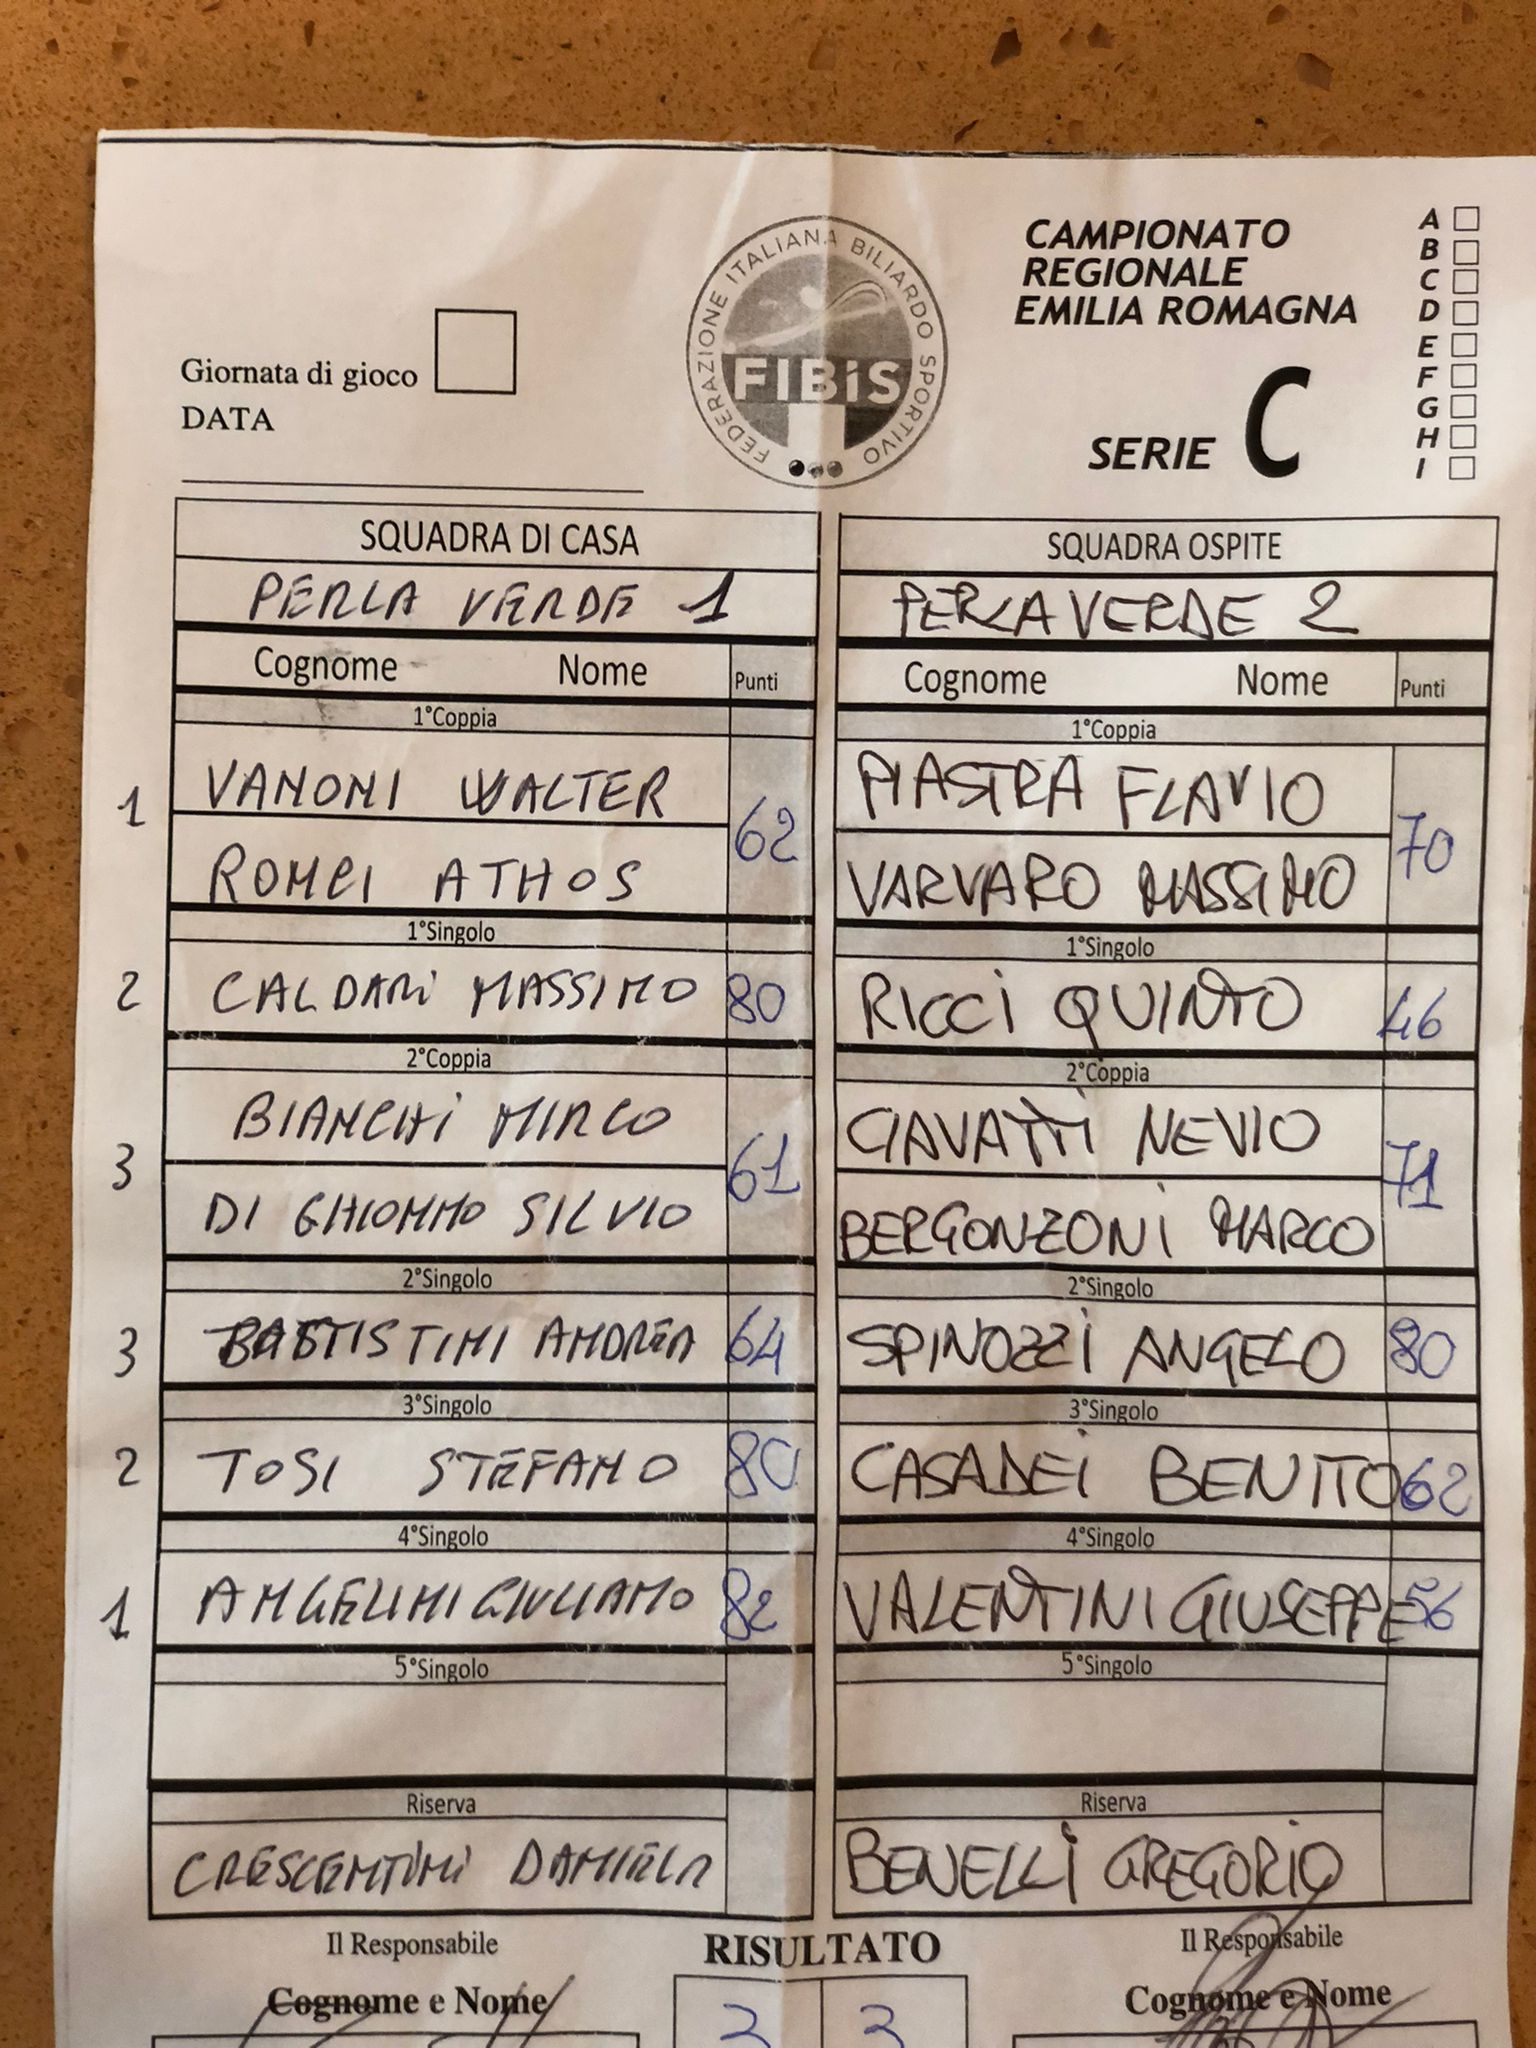 CAMPIONATO
REGIONALE
EMILIA ROMAGNA
SERIE C
A
B
C
D
E
F
G
H
I
FEDERAZIONE ITALIANA BILIARDO SPORTIVO
FIBiS
Giornata di gioco
DATA
SQUADRA DI CASA
SQUADRA OSPITE
PERLA VERDE 1
PERLA VERDE 2
Cognome Nome Punti
Cognome Nome Punti
1°Coppia
1°Coppia
1 VANONI WALTER
ROMEI ATHOS
62
PIASTRA FLAVIO
VARVARO MASSIMO
70
1°Singolo
1°Singolo
2 CALDARi MASSIMO 80
RICCi QUINTO 46
2°Coppia
2°Coppia
3 BIANCHi MIRCO
DI GHIOMMO SILVIO
61
CIAVATTi NEVIO
BERGONZONi MARCO
71
2°Singolo
2°Singolo
3 BATTISTINI ANDREA 64
SPINOZZi ANGELO 80
3°Singolo
3°Singolo
2 TOSI STEFANO 80
CASADEi BENITO 62
4°Singolo
4°Singolo
1 ANGELINI GIULIANO 82
VALENTINI GIUSEPPE 56
5°Singolo
5°Singolo
Riserva
Riserva
CRESCENTINI DANIELA
BENELLi GREGORIO
Il Responsabile
RISULTATO
Il Responsabile
Cognome e Nome
Cognome e Nome
3 3